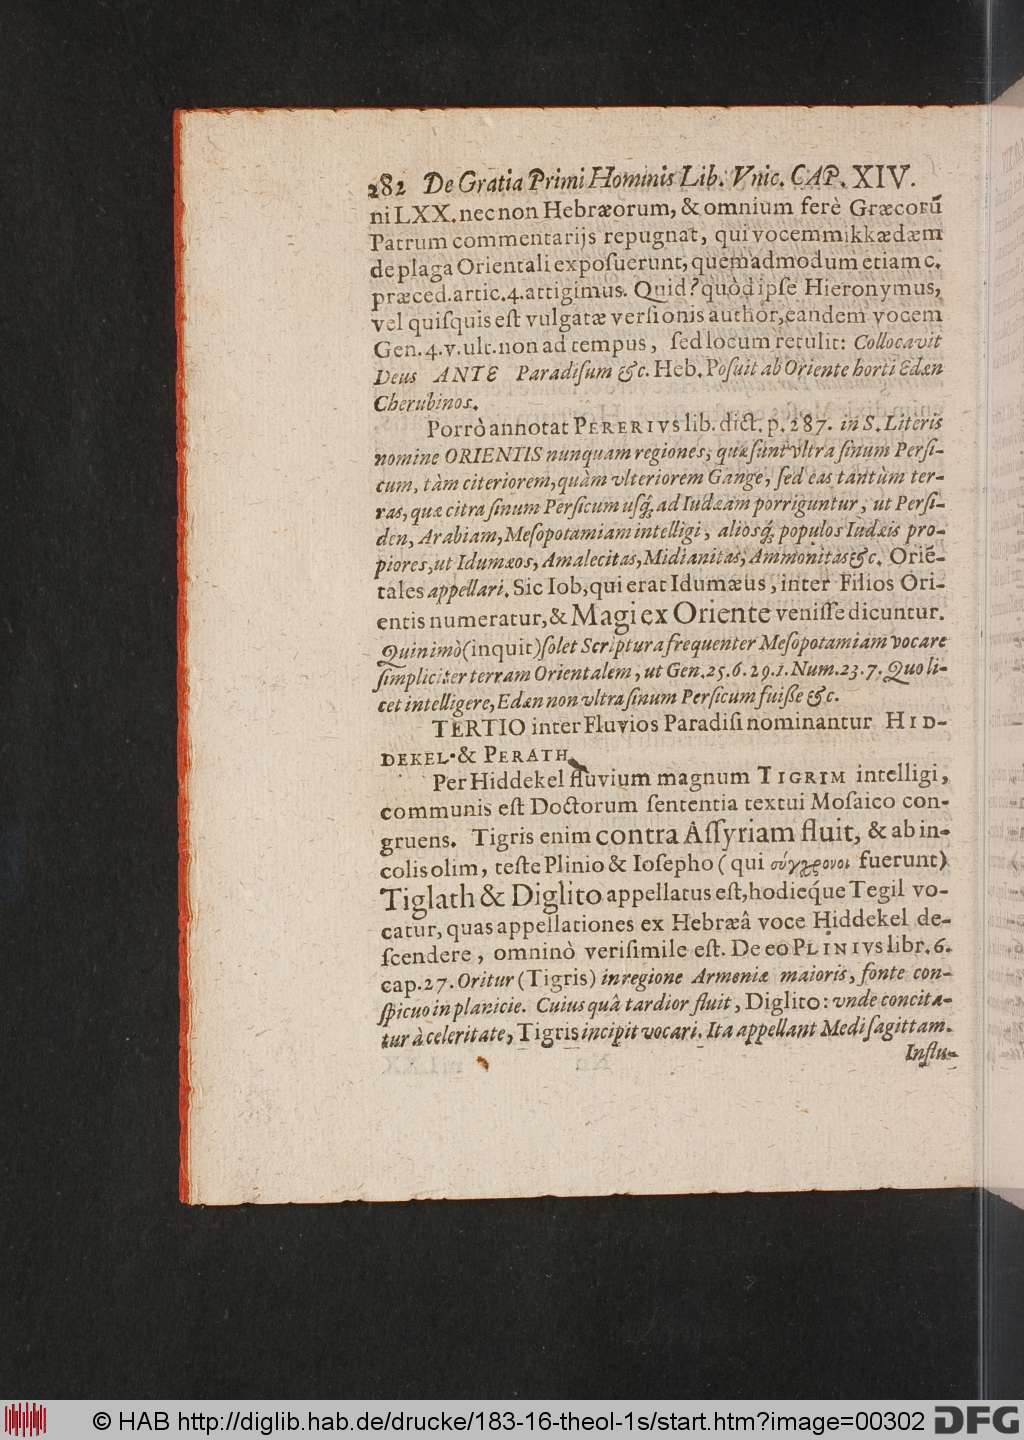 282 De Gratia Primi Hominis Lib. Vnic. CAP. XIV.
ni LXX. nec non Hebræorum, & omnium ferè Græcorũ
Patrum commentarijs repugnat, qui vocem mikkædæm
de plaga Orientali exposuerunt, quemadmodum etiam c.
præced. artic. 4. attigimus. Quid? quòd ipse Hieronymus,
vel quisquis est vulgatæ versionis author, eandem vocem
Gen. 4. v. ult. non ad tempus, sed locum retulit: Collocavit
Deus ANTE Paradisum &c. Heb. Posuit ab Oriente horti Edæn
Cherubinos.
Porrò annotat PERERIVS lib. dict. p. 287. in S. Literis
nomine ORIENTIS nunquam regiones, quæ sunt vltra sinum Persi-
cum, tàm citeriorem, quàm vlteriorem Gange, sed eas tantùm ter-
ras, quæ citra sinum Persicum usq́; ad Iudæam porriguntur, ut Persi-
den, Arabiam, Mesopotamiam intelligi, aliosq́; populos Iudæis pro-
piores, ut Idumæos, Amalecitas, Midianitas, Ammonitas &c. Oriẽ-
tales appellari. Sic Iob, qui erat Idumæus, inter Filios Ori-
entis numeratur, & Magi ex Oriente venisse dicuntur.
Quinimò (inquit) solet Scriptura frequenter Mesopotamiam vocare
simpliciter terram Orientalem, ut Gen. 25. 6. 29. 1. Num. 23. 7. Quo li-
cet intelligere, Edæn non vltra sinum Persicum fuisse &c.
TERTIO inter Fluvios Paradisi nominantur HID-
DEKEL & PERATH.
Per Hiddekel fluvium magnum TIGRIM intelligi,
communis est Doctorum sententia textui Mosaico con-
gruens. Tigris enim contra Assyriam fluit, & ab in-
colis olim, teste Plinio & Iosepho (qui σύγχρονοι fuerunt)
Tiglath & Diglito appellatus est, hodieq́ue Tegil vo-
catur, quas appellationes ex Hebræâ voce Hiddekel de-
scendere, omninò verisimile est. De eo PLINIVS libr. 6.
cap. 27. Oritur (Tigris) in regione Armeniæ maioris, fonte con-
spicuo in planicie. Cuius quâ tardior fluit, Diglito: vnde concita-
tur à celeritate, Tigris incipit vocari. Ita appellant Medi sagittam.
Influ-
© HAB http://diglib.hab.de/drucke/183-16-theol-1s/start.htm?image=00302 DFG